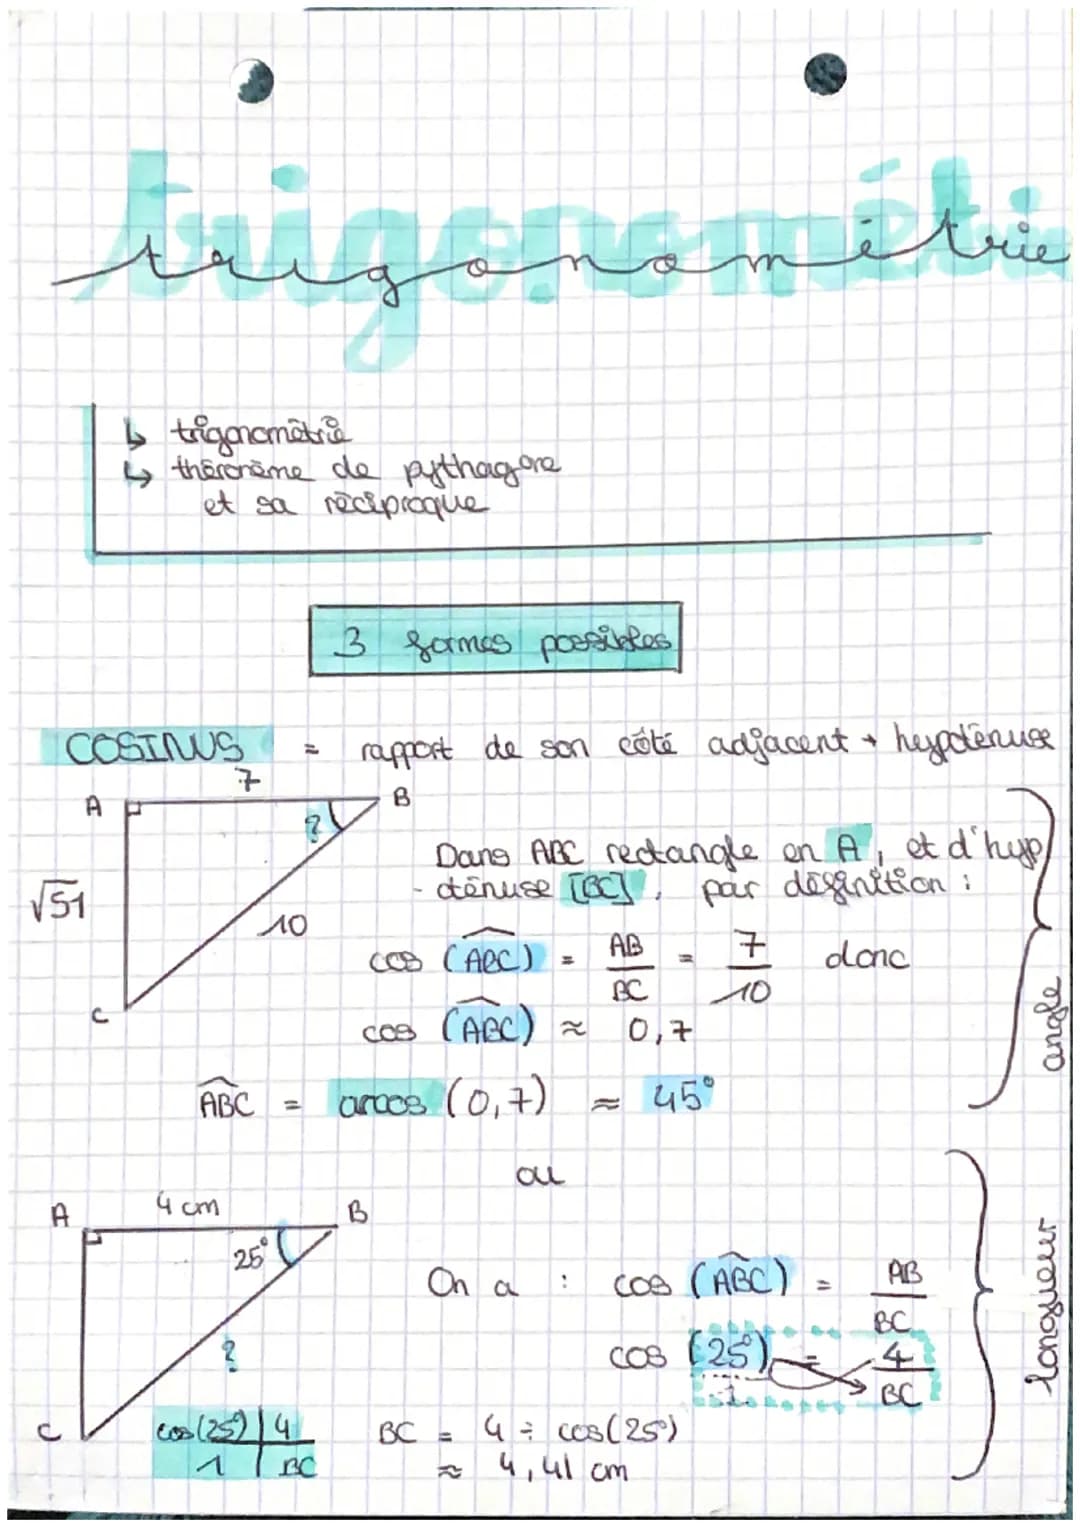 trigonométrie
↳ trigonométrie
↳ théronème de pythagore
et sa réciproque
3 formes possibles
COSINUS = rapport de son côté adjacent + hypoténuse
7
A
B
?
√51
10
C
Dans ABC rectangle en A, et d'hyp
-oténuse [BC], par définition :
cos (ABC) = AB/BC = 7/10 donc
cos (ABC) ≈ 0,7
ABC = arccos (0,7) ≈ 45°
angle
ou
4 cm
A
B
25°
?
C
On a : cos (ABC) = AB/BC
cos (25°) = 4/BC
1
cos(25°) | 4
1 | BC
BC = 4 ÷ cos(25°)
≈ 4,41 cm
longueur